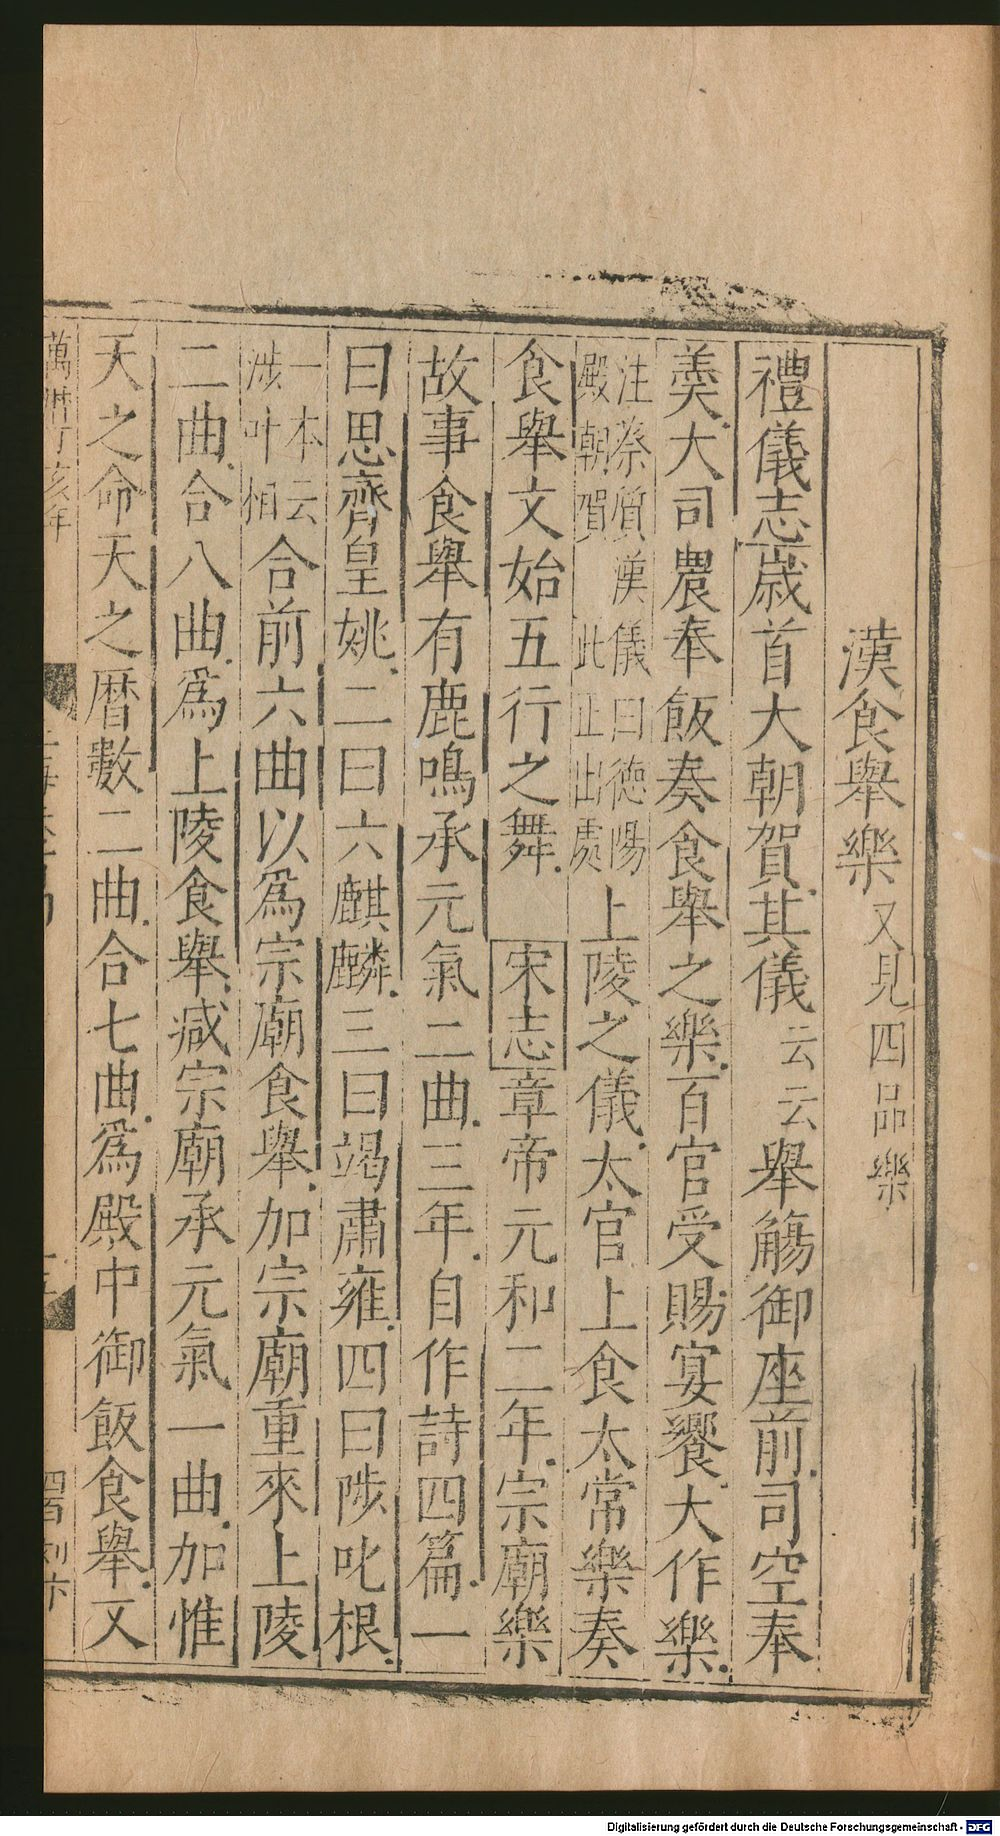 漢食舉樂又見四品樂
禮儀志歲首大朝賀其儀云云舉觴御座前司空奉
羹大司農奉飯奏食舉之樂百官受賜宴饗大作樂
注蔡質漢儀曰徳陽
殿朝賀 此止出處
上陵之儀太官上食太常樂奏
食舉文始五行之舞 宋志章帝元和二年宗廟樂
故事食舉有鹿鳴承元氣二曲三年自作詩四篇一
曰思齊皇姚二曰六麒麟三曰竭肅雍四曰陟叱根
一本云
涉叶相
合前六曲以爲宗廟食舉加宗廟重來上陵
二曲合八曲爲上陵食舉减宗廟承元氣一曲加惟
天之命天之曆數二曲合七曲爲殿中御飯食舉又
萬暦丁亥年
Digitalisierung gefördert durch die Deutsche Forschungsgemeinschaft - DFG